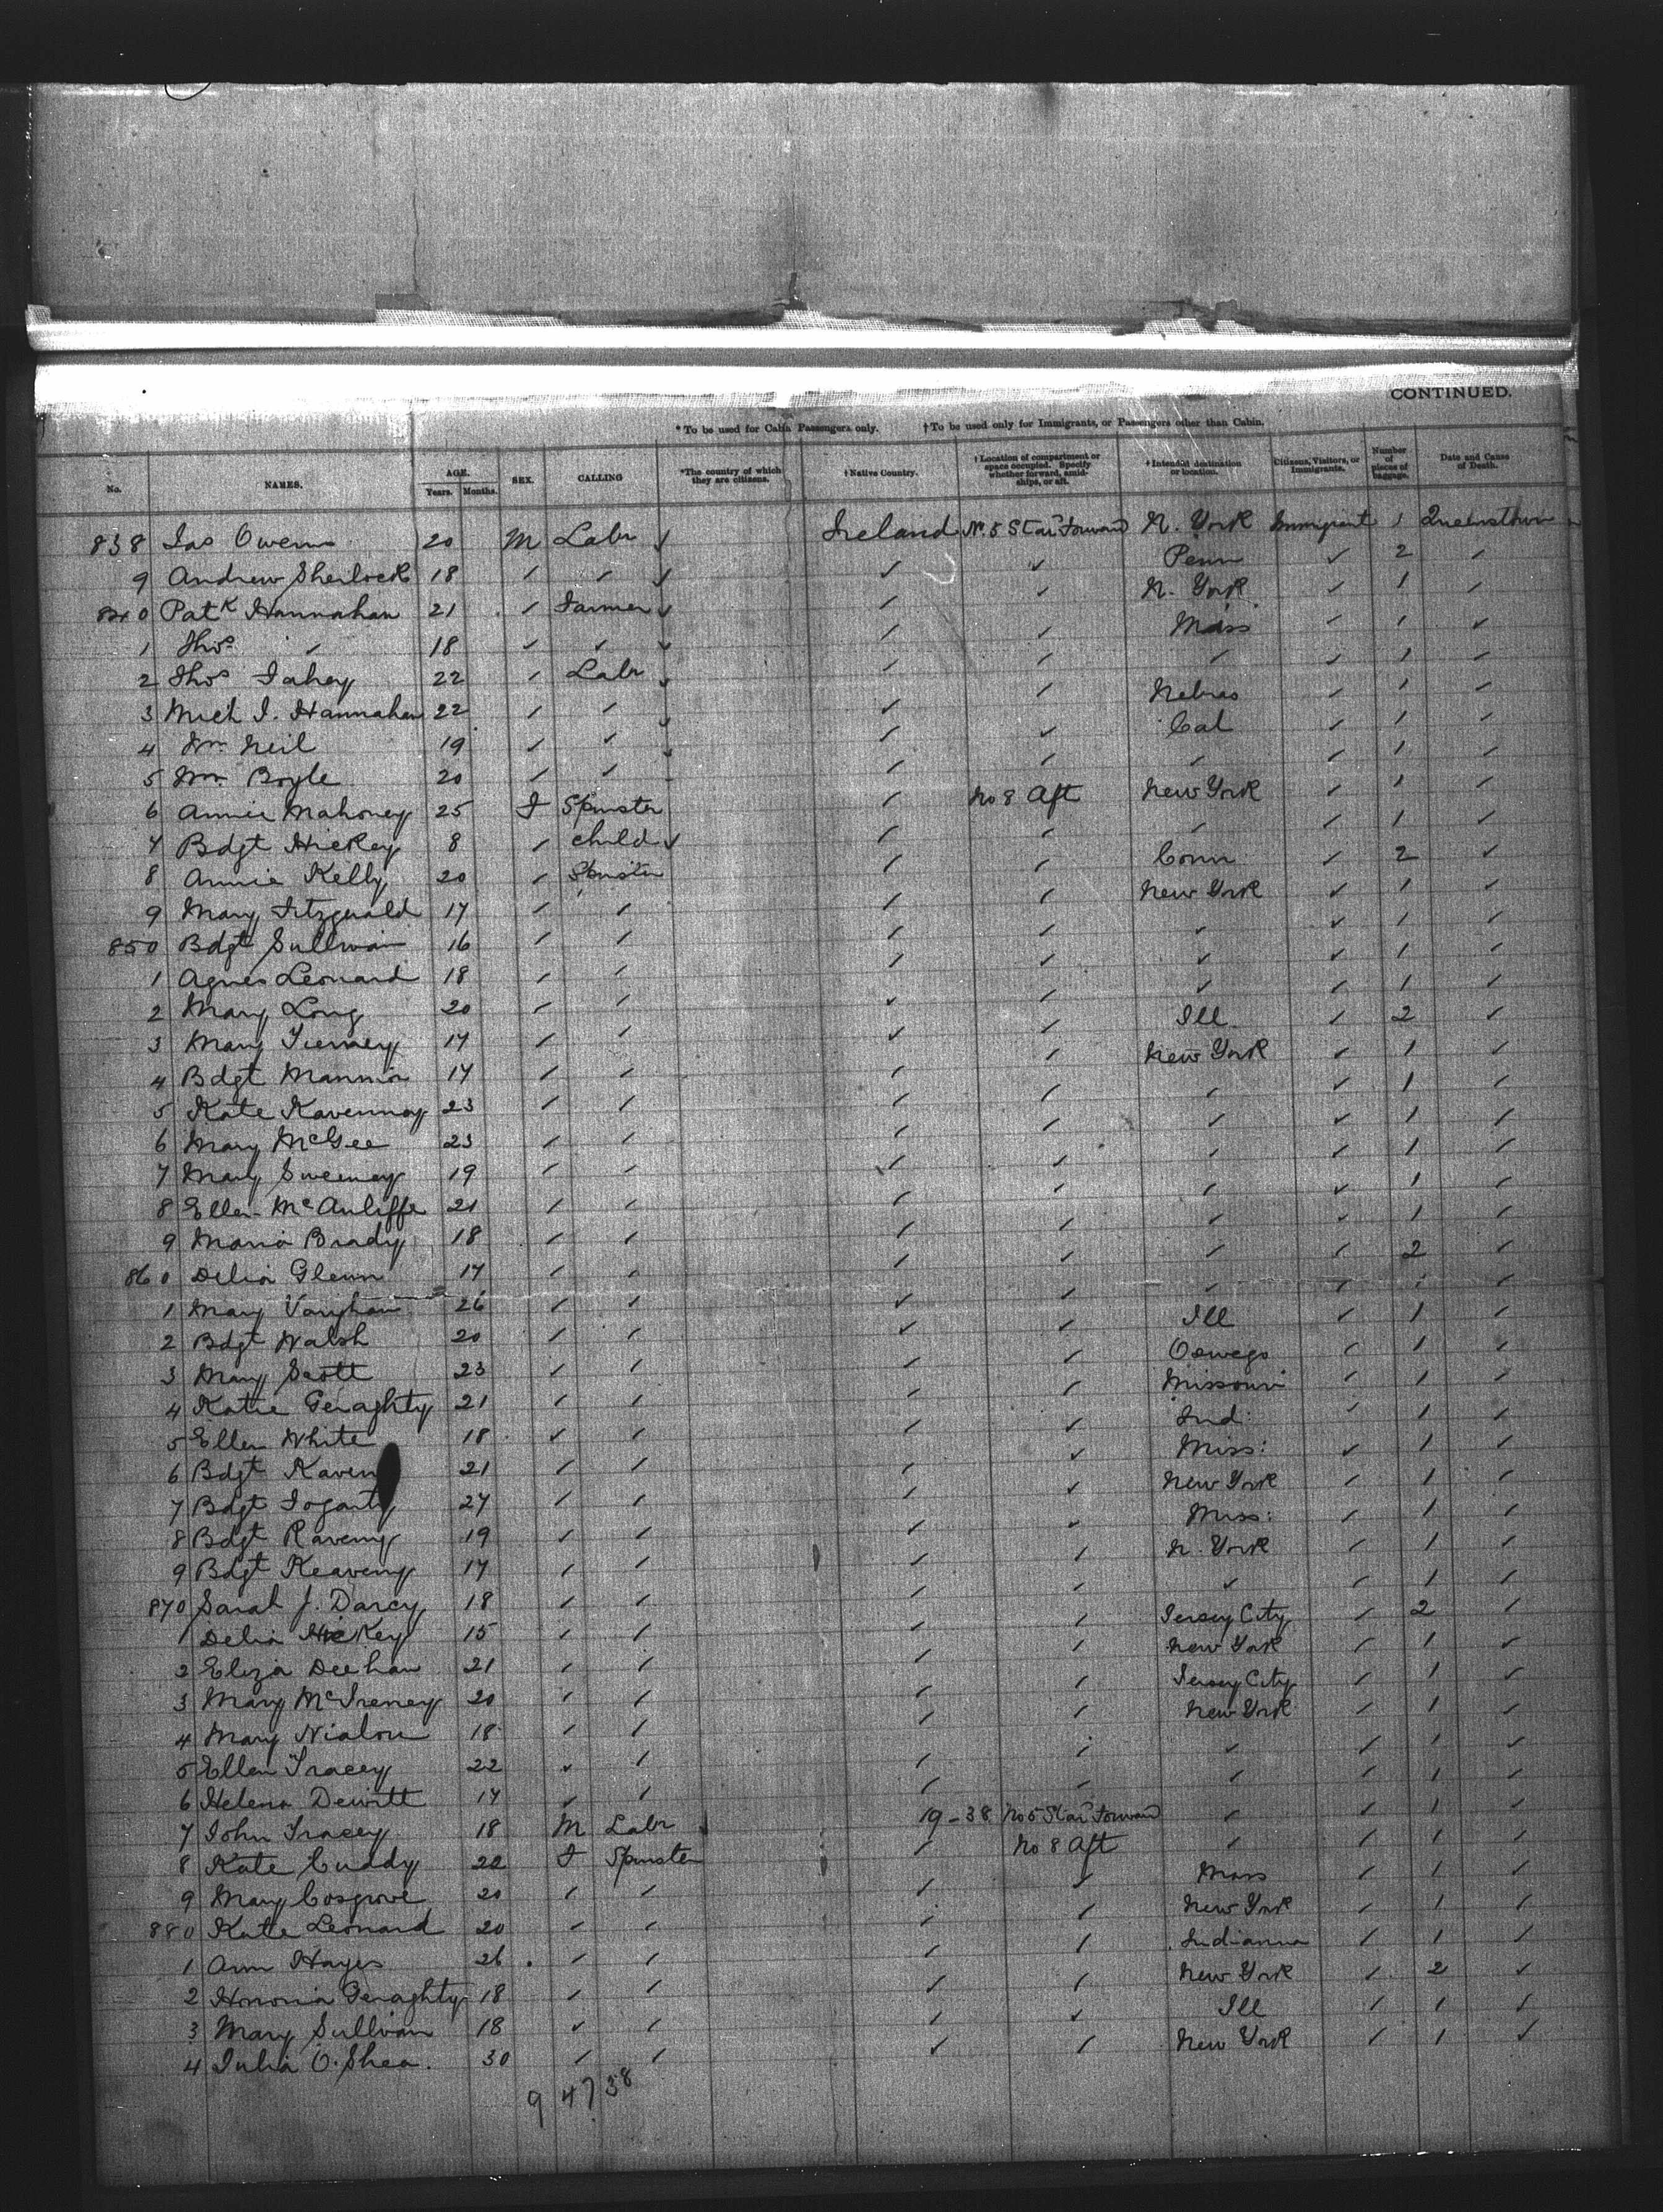 CONTINUED.
* To be used for Cabin Passengers only. † To be used only for Immigrants, or Passengers other than Cabin.
No. NAMES. AGE. Years. Months. SEX. CALLING *The country of which they are citizens. †Native Country. †Location of compartment or space occupied. Specify whether forward, amidships, or aft. †Intended destination or location. Citizens, Visitors, or Immigrants. Number of pieces of baggage. Date and Cause of Death.
838 Jas Owens 20 M Labr ✓ Ireland No. 5 Star Forward N. York Immigrant 1 Queenstown
9 Andrew Sherlock 18 ✓ ✓ ✓ ✓ ✓ Penn ✓ 2 ✓
840 Patk Hannahan 21 ✓ Farmer ✓ ✓ ✓ N. York ✓ 1 ✓
1 Thos ✓ 18 ✓ ✓ ✓ ✓ ✓ Mass ✓ 1 ✓
2 Thos Fahey 22 ✓ Labr ✓ ✓ ✓ ✓ ✓ 1 ✓
3 Mich J. Hannahan 22 ✓ ✓ ✓ ✓ ✓ Nebras ✓ 1 ✓
4 Wm Neil 19 ✓ ✓ ✓ ✓ ✓ Cal ✓ 1 ✓
5 Wm Boyle 20 ✓ ✓ ✓ ✓ ✓ ✓ 1 ✓
6 Annie Mahoney 25 F Spinster ✓ No 8 Aft New York ✓ 1 ✓
7 Bdgt Hickey 8 ✓ child ✓ ✓ ✓ ✓ ✓ 1 ✓
8 Annie Kelly 20 ✓ Spinster ✓ ✓ Conn ✓ 2 ✓
9 Mary Fitzgerald 17 ✓ ✓ ✓ ✓ New York ✓ 1 ✓
850 Bdgt Sullivan 16 ✓ ✓ ✓ ✓ ✓ ✓ 1 ✓
1 Agnes Leonard 18 ✓ ✓ ✓ ✓ ✓ ✓ 1 ✓
2 Mary Long 20 ✓ ✓ ✓ ✓ ✓ ✓ 1 ✓
3 Mary Tierney 17 ✓ ✓ ✓ ✓ Ill ✓ 2 ✓
4 Bdgt Mannion 17 ✓ ✓ ✓ ✓ New York ✓ 1 ✓
5 Kate Kavennay 23 ✓ ✓ ✓ ✓ ✓ ✓ 1 ✓
6 Mary McGee 23 ✓ ✓ ✓ ✓ ✓ ✓ 1 ✓
7 Mary Sweeney 19 ✓ ✓ ✓ ✓ ✓ ✓ 1 ✓
8 Ellen McAuliffe 21 ✓ ✓ ✓ ✓ ✓ ✓ 1 ✓
9 Maria Brady 18 ✓ ✓ ✓ ✓ ✓ ✓ 1 ✓
860 Delia Glenn 17 ✓ ✓ ✓ ✓ ✓ ✓ 2 ✓
1 Mary Vaughan 26 ✓ ✓ ✓ ✓ ✓ ✓ 1 ✓
2 Bdgt Walsh 20 ✓ ✓ ✓ ✓ Ill ✓ 1 ✓
3 Mary Scott 23 ✓ ✓ ✓ ✓ Oswego ✓ 1 ✓
4 Katie Geraghty 21 ✓ ✓ ✓ ✓ Missouri ✓ 1 ✓
5 Ellen White 18 ✓ ✓ ✓ ✓ Ind: ✓ 1 ✓
6 Bdgt 21 ✓ ✓ ✓ ✓ Miss: ✓ 1 ✓
7 Bdgt Fogarty 27 ✓ ✓ ✓ ✓ New York ✓ 1 ✓
8 Bdgt Raveny 19 ✓ ✓ ✓ ✓ Miss: ✓ 1 ✓
9 Bdgt Keaveny 17 ✓ ✓ ✓ ✓ N. York ✓ 1 ✓
870 Sarah J. Darcy 18 ✓ ✓ ✓ ✓ ✓ ✓ 1 ✓
1 Delia Hickey 15 ✓ ✓ ✓ ✓ Jersey City ✓ 2 ✓
2 Eliza Deehan 21 ✓ ✓ ✓ ✓ New York ✓ 1 ✓
3 Mary 20 ✓ ✓ ✓ ✓ Jersey City ✓ 1 ✓
4 Mary Nialon 18 ✓ ✓ ✓ ✓ New York ✓ 1 ✓
5 Ellen Tracey 22 ✓ ✓ ✓ ✓ ✓ ✓ 1 ✓
6 Helena Dewitt 17 ✓ ✓ ✓ ✓ ✓ ✓ 1 ✓
7 John Tracey 18 M Labr ✓ 19-38 No 5 Star Forward ✓ ✓ 1 ✓
8 Kate Cuddy 22 F Spinster ✓ No 8 Aft ✓ ✓ 1 ✓
9 Mary Cosgrove 20 ✓ ✓ ✓ ✓ Mass ✓ 1 ✓
880 Kate Leonard 20 ✓ ✓ ✓ ✓ New York ✓ 1 ✓
1 Ann Hayes 26 ✓ ✓ ✓ ✓ Indianna ✓ 1 ✓
2 Honoria Geraghty 18 ✓ ✓ ✓ ✓ New York ✓ 2 ✓
3 Mary Sullivan 18 ✓ ✓ ✓ ✓ Ill ✓ 1 ✓
4 Julia O'Shea. 30 ✓ ✓ ✓ ✓ New York ✓ 1 ✓
9 47 38